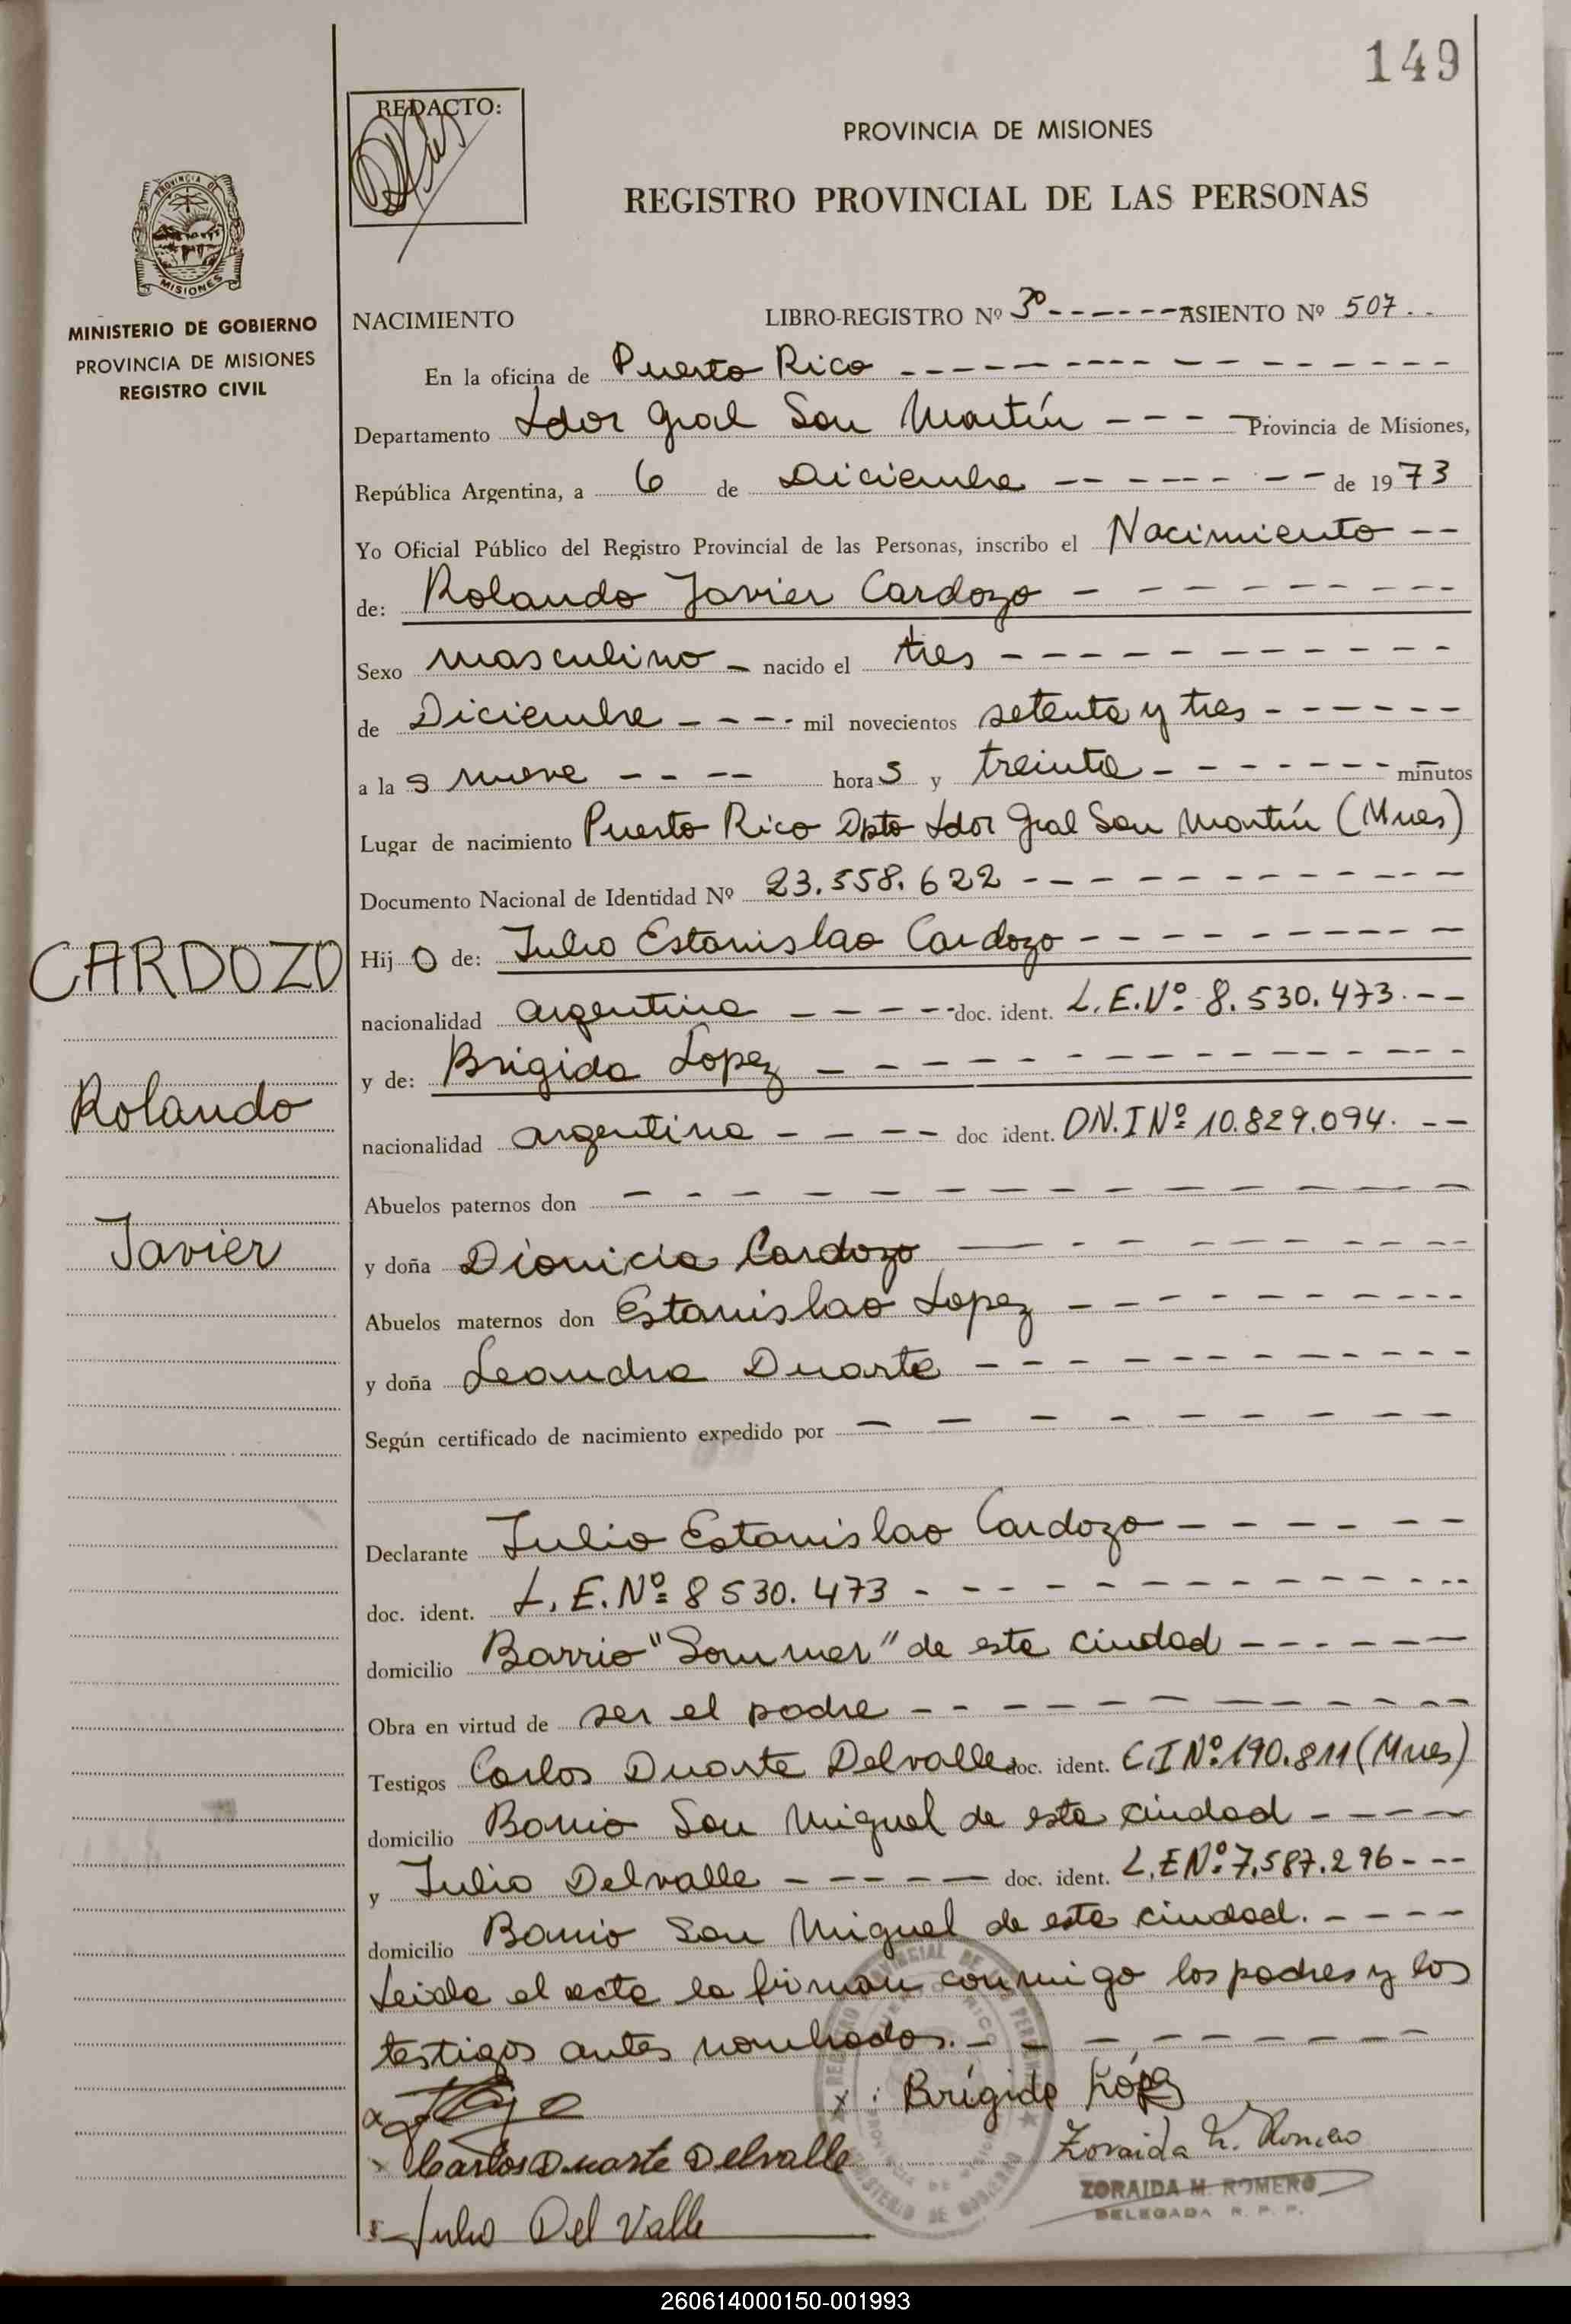 149
REDACTO:
PROVINCIA DE MISIONES
REGISTRO PROVINCIAL DE LAS PERSONAS
PROVINCIA DE
MISIONES
MINISTERIO DE GOBIERNO
PROVINCIA DE MISIONES
REGISTRO CIVIL
NACIMIENTO LIBRO-REGISTRO Nº 3º ------- ASIENTO Nº 507 --
En la oficina de Puerto Rico
Departamento Ldor Gral San Martín --- Provincia de Misiones,
República Argentina, a 6 de Diciembre --- de 1973
Yo Oficial Público del Registro Provincial de las Personas, inscribo el Nacimiento --
de: Rolando Javier Cardozo
Sexo masculino - nacido el tres
de Diciembre ---- mil novecientos setenta y tres
a las nueve ---- horas y treinta --- minutos
Lugar de nacimiento Puerto Rico Dpto Ldor Gral San Martín (Mnes)
Documento Nacional de Identidad Nº 23.558.622
CARDOZO
Hijo de: Julio Estanislao Cardozo
nacionalidad argentina ---- doc. ident. L.E.Nº 8.530.473.--
y de: Brigida Lopez
Rolando
nacionalidad argentina ---- doc ident. DN.I Nº 10.829.094. --
Abuelos paternos don
Javier
y doña Dionicia Cardozo
Abuelos maternos don Estanislao Lopez
y doña Leandra Duarte
Según certificado de nacimiento expedido por
Declarante Julio Estanislao Cardozo
doc. ident. L.E.Nº 8 530.473
domicilio Barrio "Sommer" de esta ciudad
Obra en virtud de ser el padre
Testigos Carlos Duarte Delvalle doc. ident. C.I Nº 190.811 (Mnes)
domicilio Barrio San Miguel de esta ciudad ----
y Julio Delvalle ----- doc. ident. L.E Nº 7.587.296 ---
domicilio Barrio San Miguel de esta ciudad. ----
Leida el acta la firman conmigo los padres y los
testigos antes nombrados.-
x : Brígida López
Carlos Duarte Delvalle
Zoraida M. Romero
ZORAIDA M. ROMERO
DELEGADA R. P. P.
Julio Del Valle
260614000150-001993